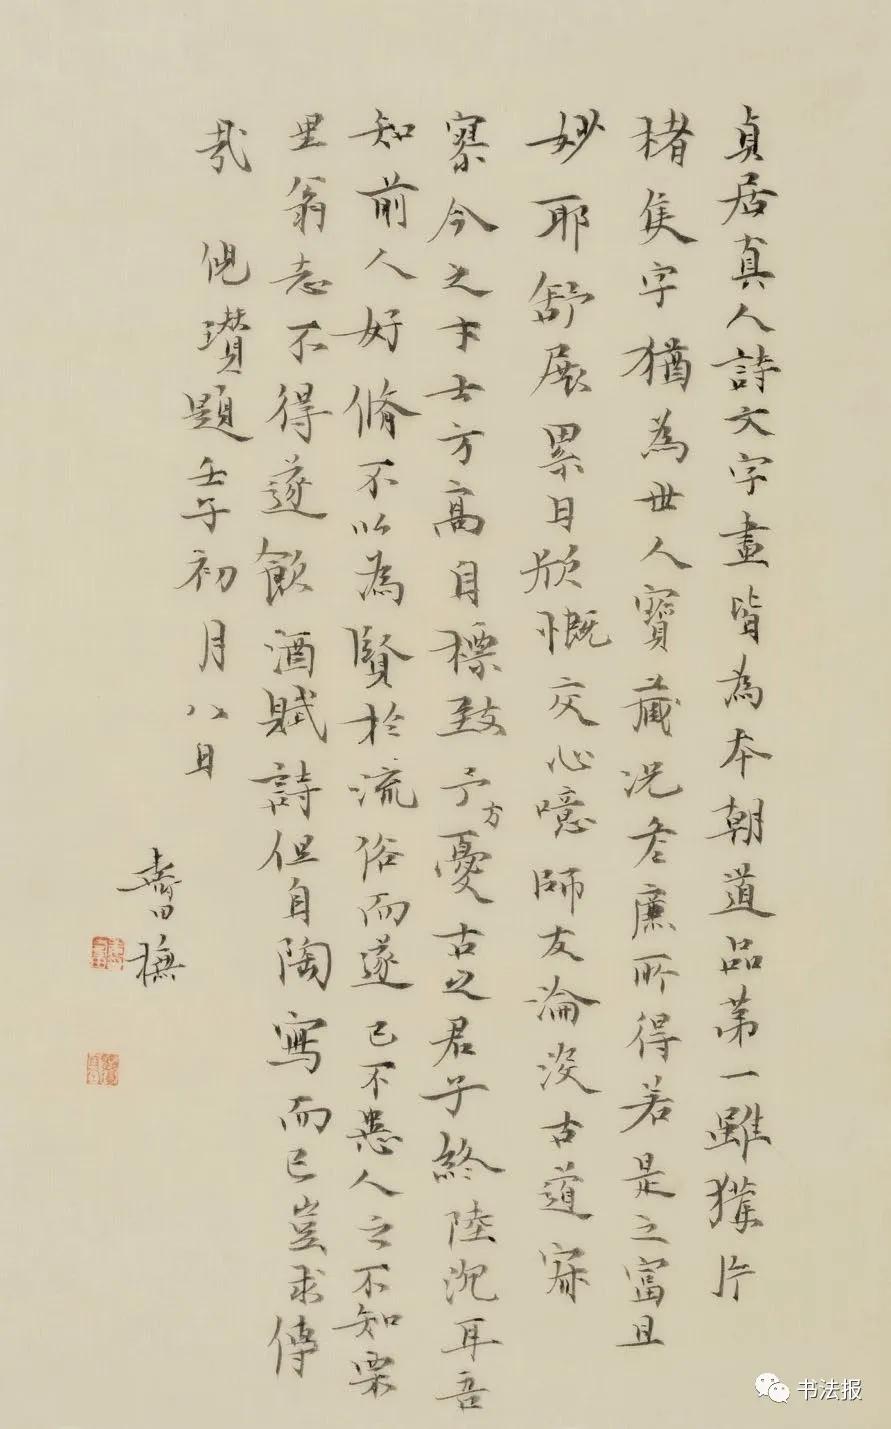 貞居真人詩文字畫皆為本朝道品第一雖獲片
楮隻字猶為世人寶藏況彥廉所得若是之富且
妙耶舒展累日欣慨交心噫師友淪沒古道寂
寥今之才士方高自標致予方憂古之君子終陸沉耳吾
知前人好脩不以為賢於流俗而遂已不患人之不知栗
里翁志不得遂飲酒賦詩但自陶寫而已豈求傳
哉 倪瓚題壬子初月八日
書撫
书法报